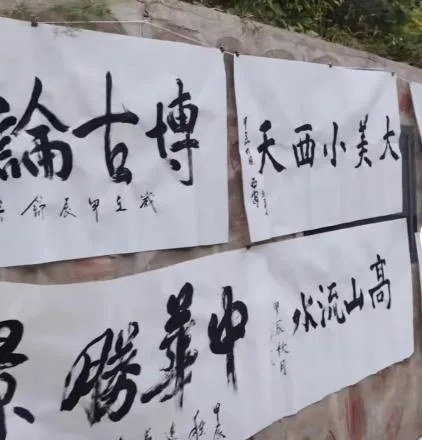 大美小西天
博古論
歲在甲辰
高山流水
甲辰秋月
中華勝景
甲辰